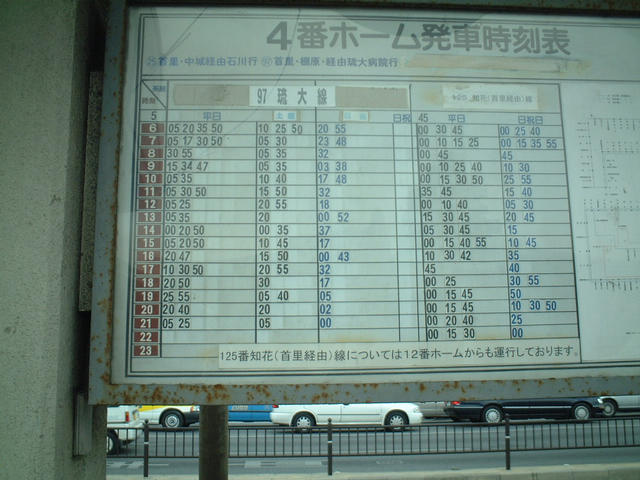 4番ホーム発車時刻表
㉕首里・中城経由石川行 ㊼首里・棚原・経由琉大病院行
時刻 97 琉大線 125 知花(首里経由)線
平日 土曜 日祝 平日 日祝日
5 45
6 05 20 35 50 10 25 50 20 55 00 30 45 00 25 40
7 05 17 30 50 05 30 23 48 00 10 15 25 00 15 35 55
8 30 55 05 35 32 00 45 45
9 15 34 47 05 35 03 38 00 10 25 40 10 30
10 05 35 10 40 17 48 00 15 30 50 25 55
11 05 30 50 15 50 32 35 45 15 40
12 05 25 20 55 18 00 10 40 05 30
13 05 35 20 00 52 15 30 45 20 45
14 00 20 50 00 35 37 05 30 45 15
15 05 20 50 10 45 17 00 15 40 55 10 45
16 20 47 15 50 00 43 10 30 42 35
17 10 30 50 20 55 32 45 40
18 20 50 30 17 00 25 30 55
19 25 55 05 40 05 00 15 45 50
20 20 40 20 02 00 15 45 10 30 50
21 05 25 05 00 00 20 40 25
22 00 15 30 00
23
125番知花(首里経由)線については12番ホームからも運行しております。